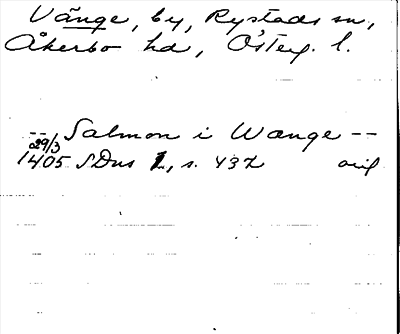 Vänge, by, Rystads sn,
Åkerbo hd, Österg. l.
-- Salmon i Wænge --
29/3
1405 SDns 1, s. 437 orig